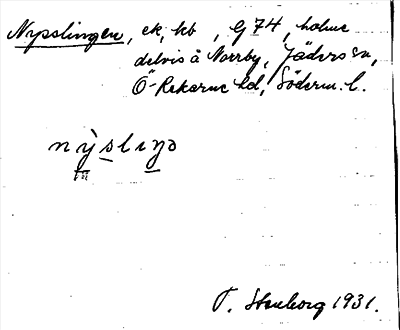 Nysslingen, ek, kb, G74, holme
delvis å Norrby, Jäders sn,
Ö-Rekarne hd, Söderm. l.
nỳslıŋə
T. Stenborg 1931.